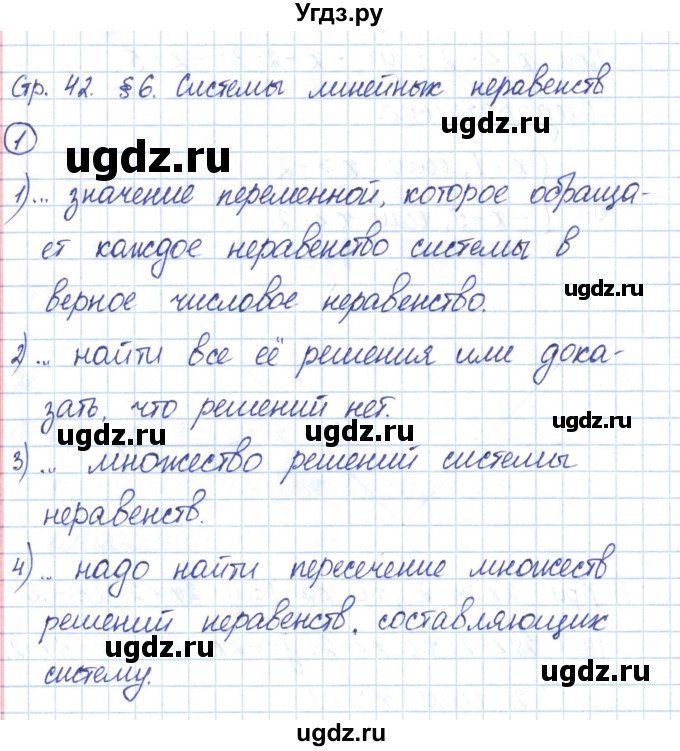 Угдз.ру
Стр. 42. §6. Системы линейных неравенств
1
ugdz.ru ugdz.ru
1)... значение переменной, которое обраща-
ет каждое неравенство системы в
верное числовое неравенство.
ugdz.ru
2)... найти все её решения или дока-
зать, что решений нет.
ugdz.ru ugdz.ru
3)... множество решений системы
неравенств.
4)... надо найти пересечение множеств
решений неравенств, составляющих
ugdz.ru ugdz.ru
систему.
ugdz.ru